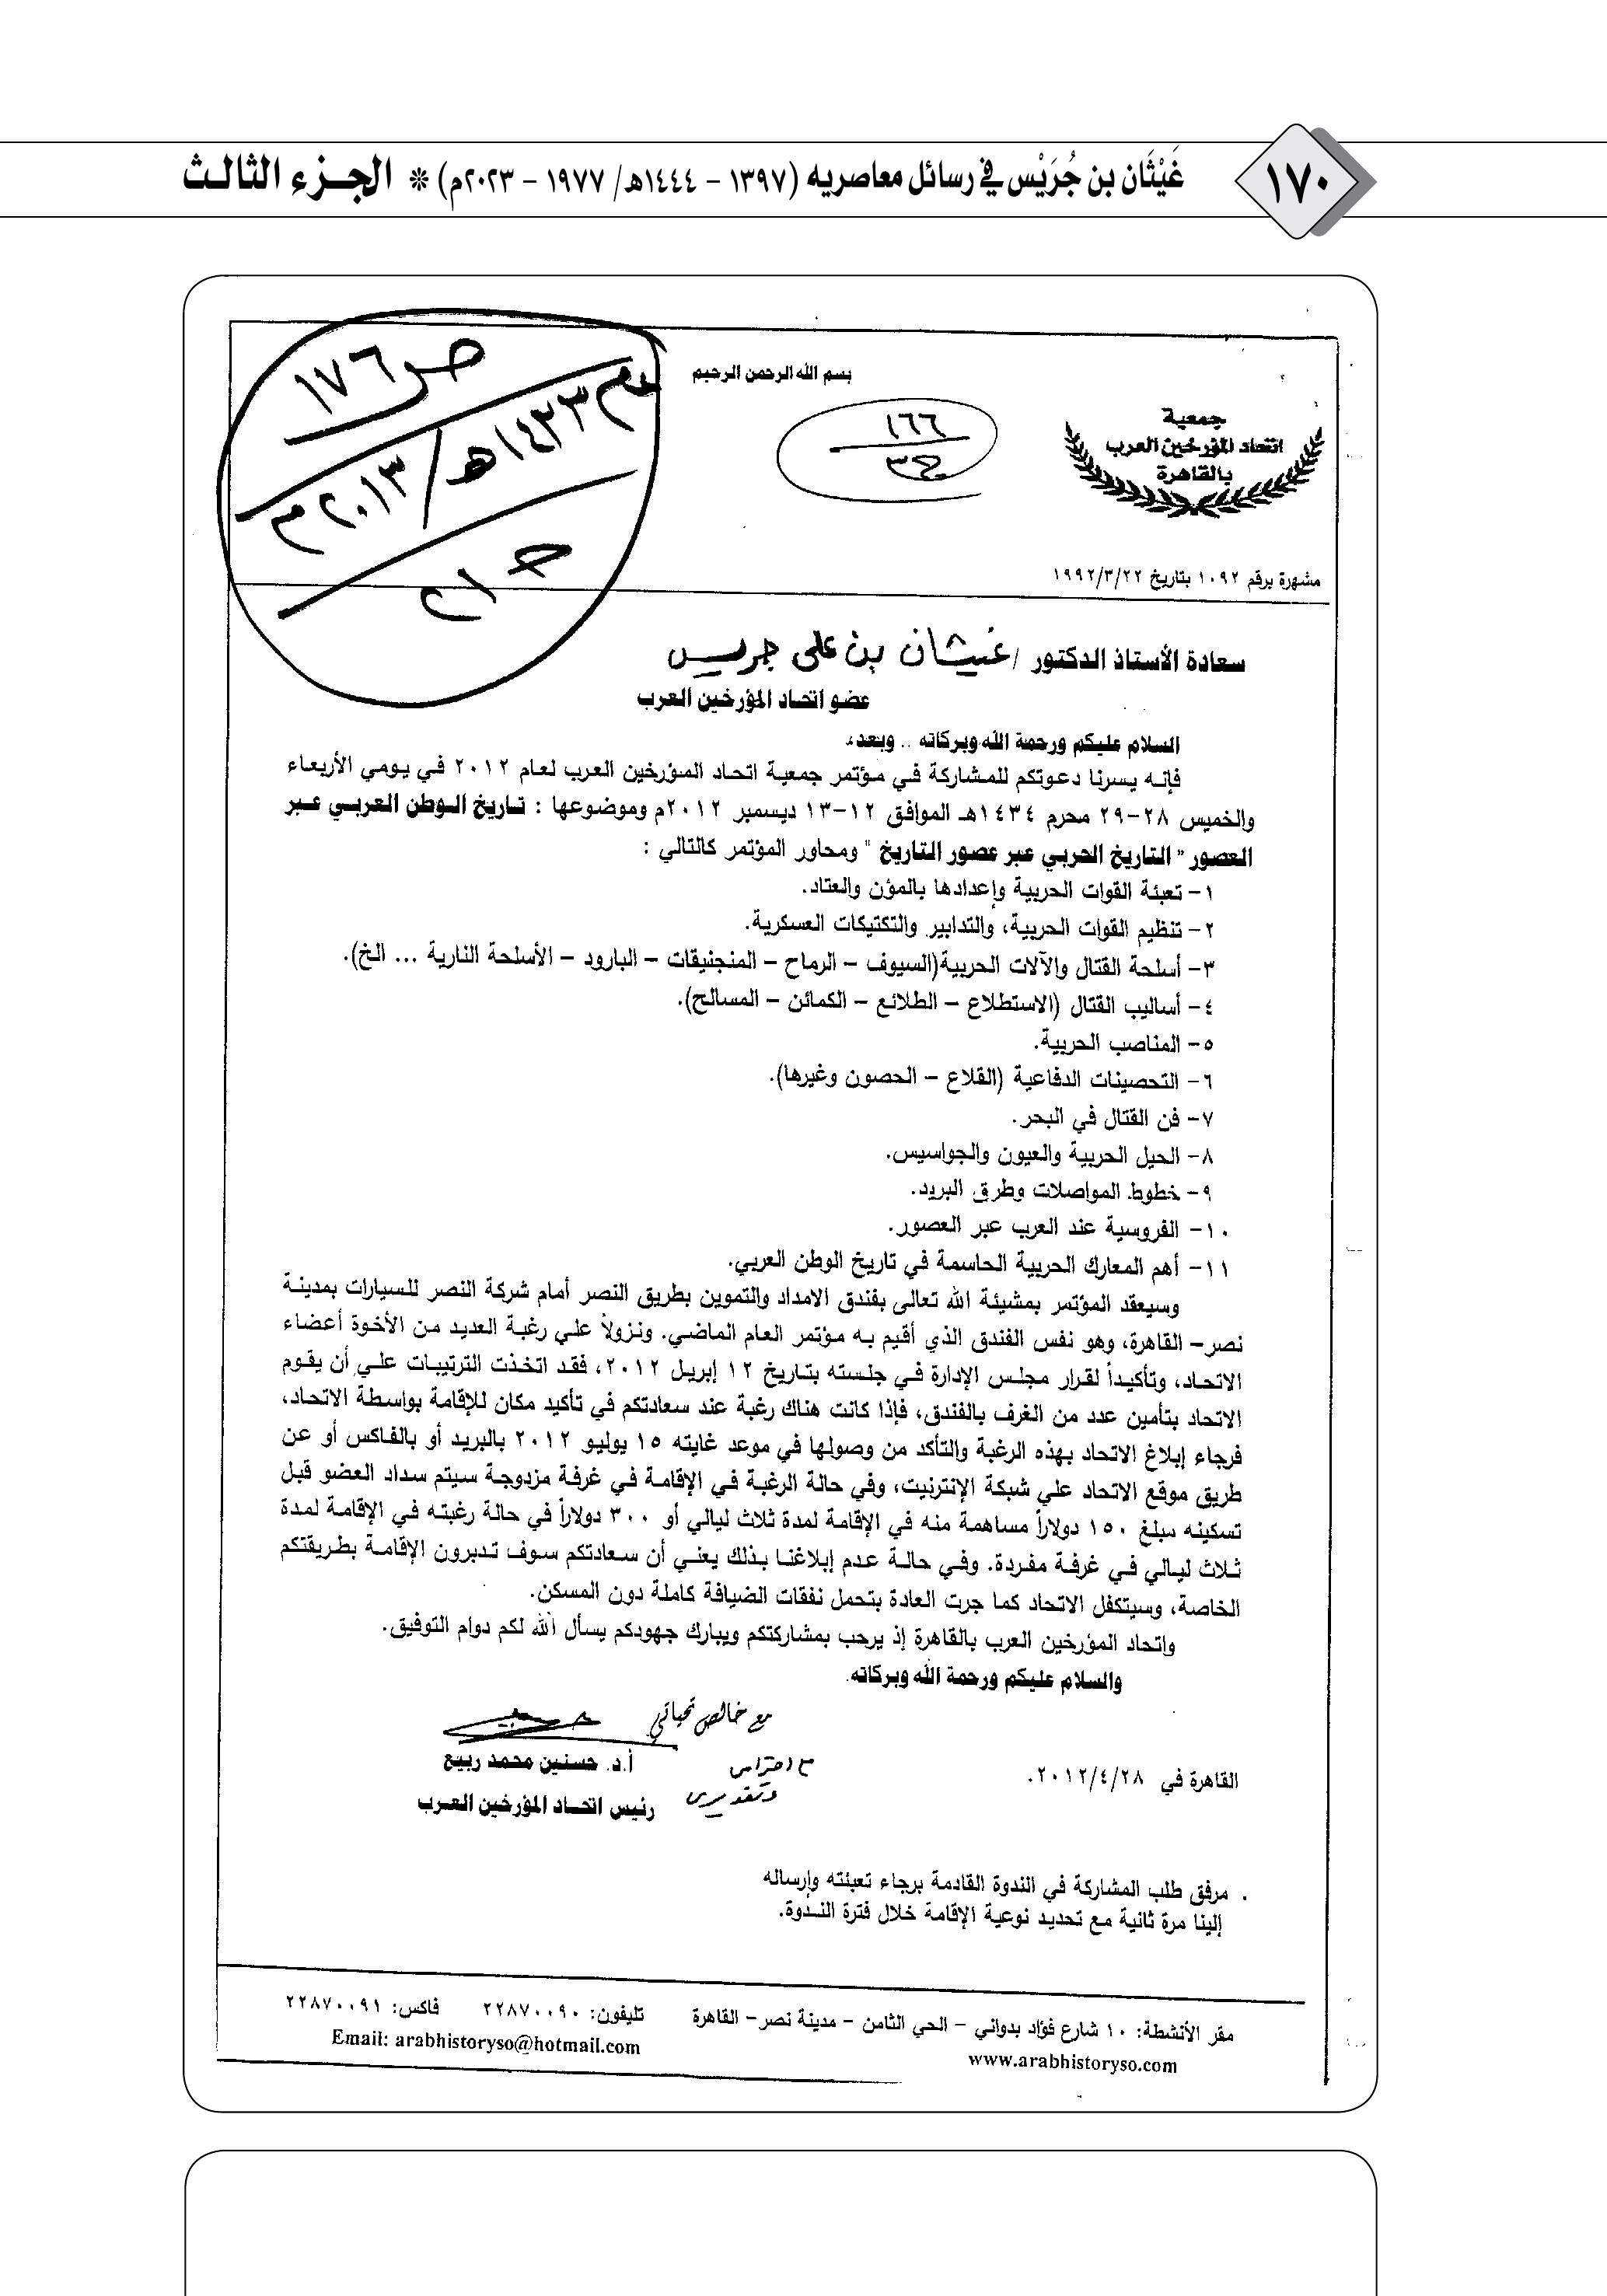 ١٧٠
غَيْثَان بن جُرَيْس في رسائل معاصريه (١٣٩٧ - ١٤٤٤هـ/ ١٩٧٧ - ٢٠٢٣م) * الجزء الثالث
ص ١٧٦
عام ١٤٣٣هـ/ ٢٠١٣م
بسم الله الرحمن الرحيم
١٦٦
جمعية
اتحاد المؤرخين العرب
بالقاهرة
مشهرة برقم ١٠٩٢ بتاريخ ١٩٩٢/٣/٢٢
سعادة الأستاذ الدكتور / غيثان بن على جريس
عضو اتحاد المؤرخين العرب
السلام عليكم ورحمة الله وبركاته .. وبعد،
فإنه يسرنا دعوتكم للمشاركة في مؤتمر جمعية اتحاد المؤرخين العرب لعام ٢٠١٢ في يومي الأربعاء
والخميس ٢٨-٢٩ محرم ١٤٣٤هـ الموافق ١٢-١٣ ديسمبر ٢٠١٢م وموضوعها : تاريخ الوطن العربي عبر
العصور " التاريخ الحربي عبر عصور التاريخ " ومحاور المؤتمر كالتالي :
١- تعبئة القوات الحربية وإعدادها بالمؤن والعتاد.
٢- تنظيم القوات الحربية، والتدابير والتكتيكات العسكرية.
٣- أسلحة القتال والآلات الحربية(السيوف - الرماح - المنجنيقات - البارود - الأسلحة النارية ... الخ).
٤- أساليب القتال (الاستطلاع - الطلائع - الكمائن - المسالح).
٥- المناصب الحربية.
٦- التحصينات الدفاعية (القلاع - الحصون وغيرها).
٧- فن القتال في البحر.
٨- الحيل الحربية والعيون والجواسيس.
٩- خطوط المواصلات وطرق البريد.
١٠- الفروسية عند العرب عبر العصور.
١١- أهم المعارك الحربية الحاسمة في تاريخ الوطن العربي.
وسيعقد المؤتمر بمشيئة الله تعالى بفندق الامداد والتموين بطريق النصر أمام شركة النصر للسيارات بمدينة
نصر- القاهرة، وهو نفس الفندق الذي أقيم به مؤتمر العام الماضي. ونزولاً علي رغبة العديد من الأخوة أعضاء
الاتحاد، وتأكيداً لقرار مجلس الإدارة في جلسته بتاريخ ١٢ إبريل ٢٠١٢، فقد اتخذت الترتيبات علي أن يقوم
الاتحاد بتأمين عدد من الغرف بالفندق، فإذا كانت هناك رغبة عند سعادتكم في تأكيد مكان للإقامة بواسطة الاتحاد،
فرجاء إبلاغ الاتحاد بهذه الرغبة والتأكد من وصولها في موعد غايته ١٥ يوليو ٢٠١٢ بالبريد أو بالفاكس أو عن
طريق موقع الاتحاد علي شبكة الإنترنيت، وفي حالة الرغبة في الإقامة في غرفة مزدوجة سيتم سداد العضو قبل
تسكينه مبلغ ١٥٠ دولاراً مساهمة منه في الإقامة لمدة ثلاث ليالي أو ٣٠٠ دولاراً في حالة رغبته في الإقامة لمدة
ثلاث ليالي في غرفة مفردة. وفي حالة عدم إبلاغنا بذلك يعني أن سعادتكم سوف تدبرون الإقامة بطريقتكم
الخاصة، وسيتكفل الاتحاد كما جرت العادة بتحمل نفقات الضيافة كاملة دون المسكن.
واتحاد المؤرخين العرب بالقاهرة إذ يرحب بمشاركتكم ويبارك جهودكم يسأل الله لكم دوام التوفيق.
والسلام عليكم ورحمة الله وبركاته.
مع خالص تحياتي
أ.د. حسنين محمد ربيع
رئيس اتحاد المؤرخين العرب
القاهرة في ٢٠١٢/٤/٢٨.
. مرفق طلب المشاركة في الندوة القادمة برجاء تعبئته وإرساله
إلينا مرة ثانية مع تحديد نوعية الإقامة خلال فترة الندوة.
مقر الأنشطة: ١٠ شارع فؤاد بدواني - الحي الثامن - مدينة نصر- القاهرة تليفون: ٢٢٨٧٠٠٩٠ فاكس: ٢٢٨٧٠٠٩١
www.arabhistoryso.com Email: arabhistoryso@hotmail.com